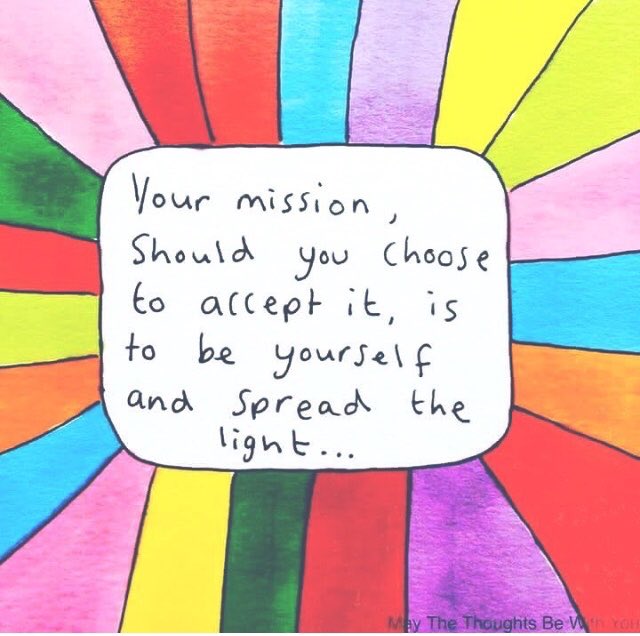 Your mission,
Should you choose
to accept it, is
to be yourself
and spread the
light...
May The Thoughts Be With You